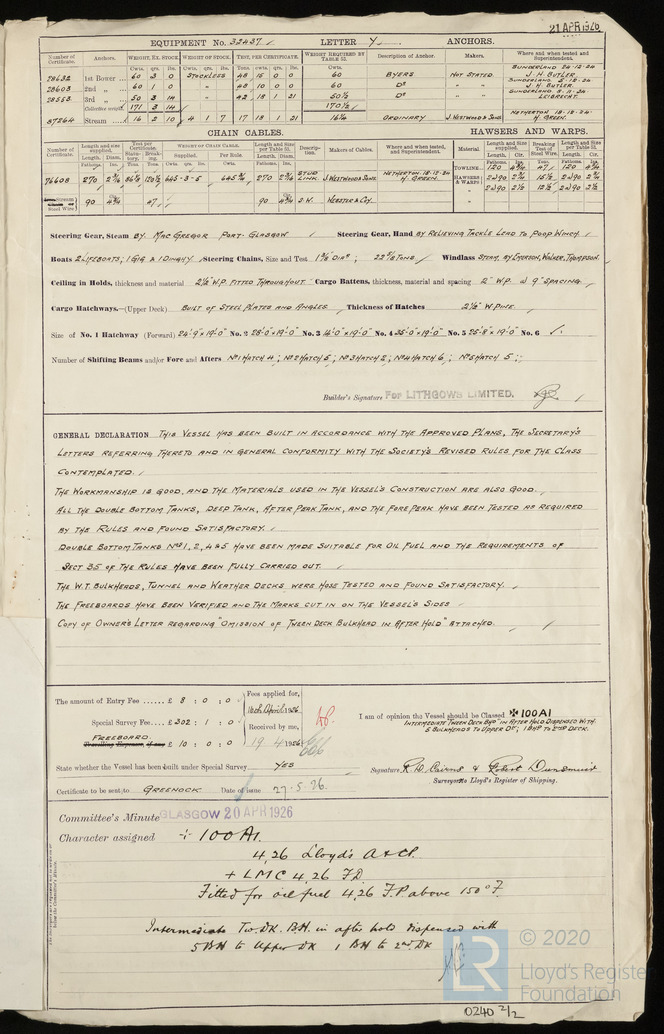 21 APR 1926
EQUIPMENT No. 32437 LETTER Y ANCHORS.
Number of Certificate. Anchors. WEIGHT, EX. STOCK. WEIGHT OF STOCK. TEST, PER CERTIFICATE. WEIGHT REQUIRED BY TABLE 53. Description of Anchor. Makers. Where and when tested and Superintendent.
Cwts. qrs. lbs. Cwts. qrs. lbs. Tons. cwts. qrs. lbs. Cwts.
78632 1st Bower ... 60 3 0 STOCKLESS 48 15 0 0 60 BYERS NOT STATED. SUNDERLAND 24-12-24 J. H. BUTLER.
78603 2nd „ 60 1 0 „ 48 10 0 0 60 Do „ „ J. H. BUTLER.
78553 3rd „ 50 3 14 „ 42 18 1 21 50½ Do „ „ LEIBRECHT.
Collective weight 171 3 14 170½
87264 Stream 16 2 10 4 1 7 17 18 1 21 16¼ ORDINARY J. WESTWOOD & SONS. NETHERTON 18-12-24 H. GREEN.
CHAIN CABLES. HAWSERS AND WARPS.
Number of Certificate. Length and size supplied. Test per Certificate. WEIGHT OF CHAIN CABLE. Length and Size per Table 53. Description. Makers of Cables. Where and when tested, and Superintendent. Material. Length and Size supplied. Breaking Test of Steel Wire. Length and Size per Table 53.
Length. Diam. Statutory. Breaking. Supplied. Per Rule. Length. Diam. Length. Cir. Length. Cir.
76608 270 645-3-5 270 STUD LINK J. WESTWOOD & SONS. NETHERTON 18-12-24 H. GREEN. TOWLINE 120 47 120
HAWSERS & WARPS 2@90 2@90
2@90 2@90
Steel Wire 90 47 90 S.W. WEBSTER & COY.
Steering Gear, Steam BY MAC GREGOR PORT-GLASGOW Steering Gear, Hand BY RELIEVING TACKLE LEAD TO POOP WINCH.
Boats 2 LIFEBOATS; 1 GIG & 1 DINGHY Steering Chains, Size and Test Windlass STEAM, BY EMERSON, WALKER, THOMPSON.
Ceiling in Holds, thickness and material 2½" W.P. FITTED THROUGHOUT. Cargo Battens, thickness, material and spacing 2" W.P. @ 9" SPACING.
Cargo Hatchways.—(Upper Deck) BUILT OF STEEL PLATES AND ANGLES. Thickness of Hatches 2½" W. PINE.
Size of No. 1 Hatchway (Forward) 24'-9"x19'-0" No. 2 28'-0"x19'-0" No. 3 14'-0"x19'-0" No. 4 35'-0"x19'-0" No. 5 25'-8"x19'-0" No. 6
Number of Shifting Beams and/or Fore and Afters No1 HATCH 4; No2 HATCH 5; No3 HATCH 2; No4 HATCH 6; No5 HATCH 5
Builder's Signature For LITHGOWS LIMITED.
GENERAL DECLARATION THIS VESSEL HAS BEEN BUILT IN ACCORDANCE WITH THE APPROVED PLANS, THE SECRETARY'S
LETTERS REFERRING THERETO AND IN GENERAL CONFORMITY WITH THE SOCIETY'S REVISED RULES FOR THE CLASS
CONTEMPLATED.
THE WORKMANSHIP IS GOOD, AND THE MATERIALS USED IN THE VESSEL'S CONSTRUCTION ARE ALSO GOOD.
ALL THE DOUBLE BOTTOM TANKS, DEEP TANK, AFTER PEAK TANK, AND THE FORE PEAK HAVE BEEN TESTED AS REQUIRED
BY THE RULES AND FOUND SATISFACTORY.
DOUBLE BOTTOM TANKS Nos 1, 2, 4 & 5 HAVE BEEN MADE SUITABLE FOR OIL FUEL AND THE REQUIREMENTS OF
SECT 35 OF THE RULES HAVE BEEN FULLY CARRIED OUT.
THE W.T. BULKHEADS, TUNNEL AND WEATHER DECKS WERE HOSE TESTED AND FOUND SATISFACTORY.
THE FREEBOARDS HAVE BEEN VERIFIED AND THE MARKS CUT IN ON THE VESSEL'S SIDES
COPY OF OWNER'S LETTER REGARDING "OMISSION OF TWEEN DECK BULKHEAD IN AFTER HOLD" ATTACHED.
The amount of Entry Fee ...... £ 8 : 0 : 0
Fees applied for,
16th April 1926
Special Survey Fee .... £ 302 : 1 : 0
Received by me,
FREEBOARD.
Travelling Expenses, if any £ 10 : 0 : 0
19.4.1926
I am of opinion the Vessel should be Classed ✠ 100A1
INTERMEDIATE TWEEN DECK BHD IN AFTER HOLD DISPENSED WITH.
5 BULKHEADS TO UPPER DK; 1 BHD TO 2ND DK.
State whether the Vessel has been built under Special Survey YES
Signature R. D. Cairns & Robert Dunsmuir
Surveyors to Lloyd's Register of Shipping.
Certificate to be sent to GREENOCK Date of issue 27.5.26.
Committee's Minute GLASGOW 20 APR 1926
Character assigned + 100A1.
4,26 Lloyd's A&CP.
+ LMC 4,26 F.D.
Fitted for oil fuel 4,26 F.P. above 150°F.
Intermediate Tw. DK. B.H. in after hold dispensed with
5 BH to Upper DK 1 BH to 2nd DK
© 2020
LR
Lloyd's Register
Foundation
0240 2/2